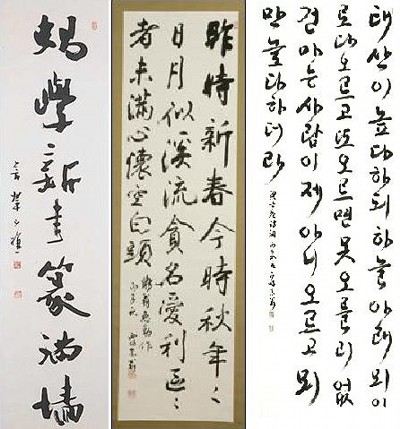 蝸學新書篆滿墻
昨時新春今時秋年々
日月似溪流貪名愛利區々
者未滿心懷空白頭
懶翁惠勤作
태산이 높다하되 하늘 아래 뫼이
로다 오르고 또 오르면 못 오를 리 없
건마는 사람이 제 아니 오르고 뫼
만 높다하더라